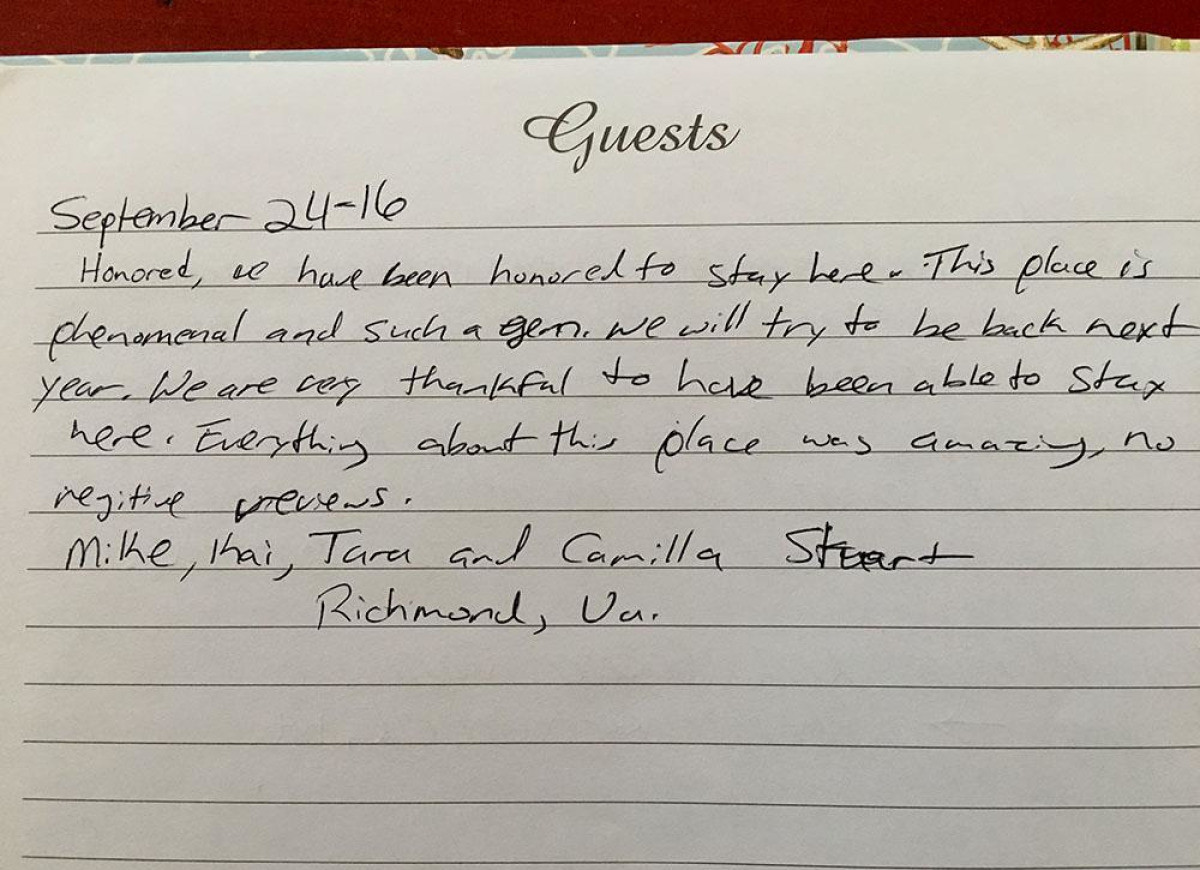 Guests
September 24-16
Honored, we have been honored to stay here. This place is
phenomenal and such a gem. We will try to be back next
year. We are very thankful to have been able to stay
here. Everything about this place was amazing, no
negitive reviews.
Mike, Kai, Tara and Camilla Stuart
Richmond, Va.